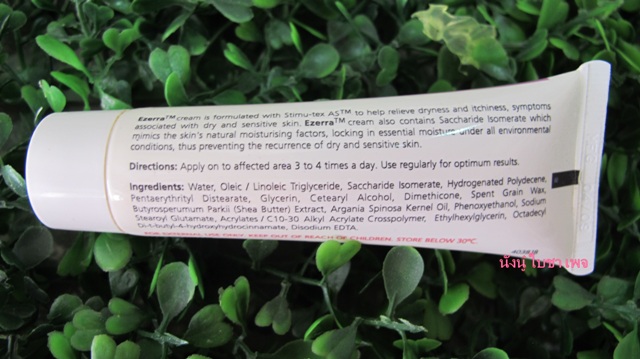 Ezerra™ cream is formulated with Stimu-tex AS™ to help relieve dryness and itchiness, symptoms
associated with dry and sensitive skin. Ezerra™ cream also contains Saccharide Isomerate which
mimics the skin's natural moisturising factors, locking in essential moisture under all environmental
conditions, thus preventing the recurrence of dry and sensitive skin.
Directions: Apply on to affected area 3 to 4 times a day. Use regularly for optimum results.
Ingredients: Water, Oleic / Linoleic Triglyceride, Saccharide Isomerate, Hydrogenated Polydecene,
Pentaerythrityl Distearate, Glycerin, Cetearyl Alcohol, Dimethicone, Spent Grain Wax,
Butyrospermum Parkii (Shea Butter) Extract, Argania Spinosa Kernel Oil, Phenoxyethanol, Sodium
Stearoyl Glutamate, Acrylates / C10-30 Alkyl Acrylate Crosspolymer, Ethylhexylglycerin, Octadecyl
Di-t-butyl-4-hydroxyhydrocinnamate, Disodium EDTA.
FOR EXTERNAL USE ONLY. KEEP OUT OF REACH OF CHILDREN. STORE BELOW 30°C.